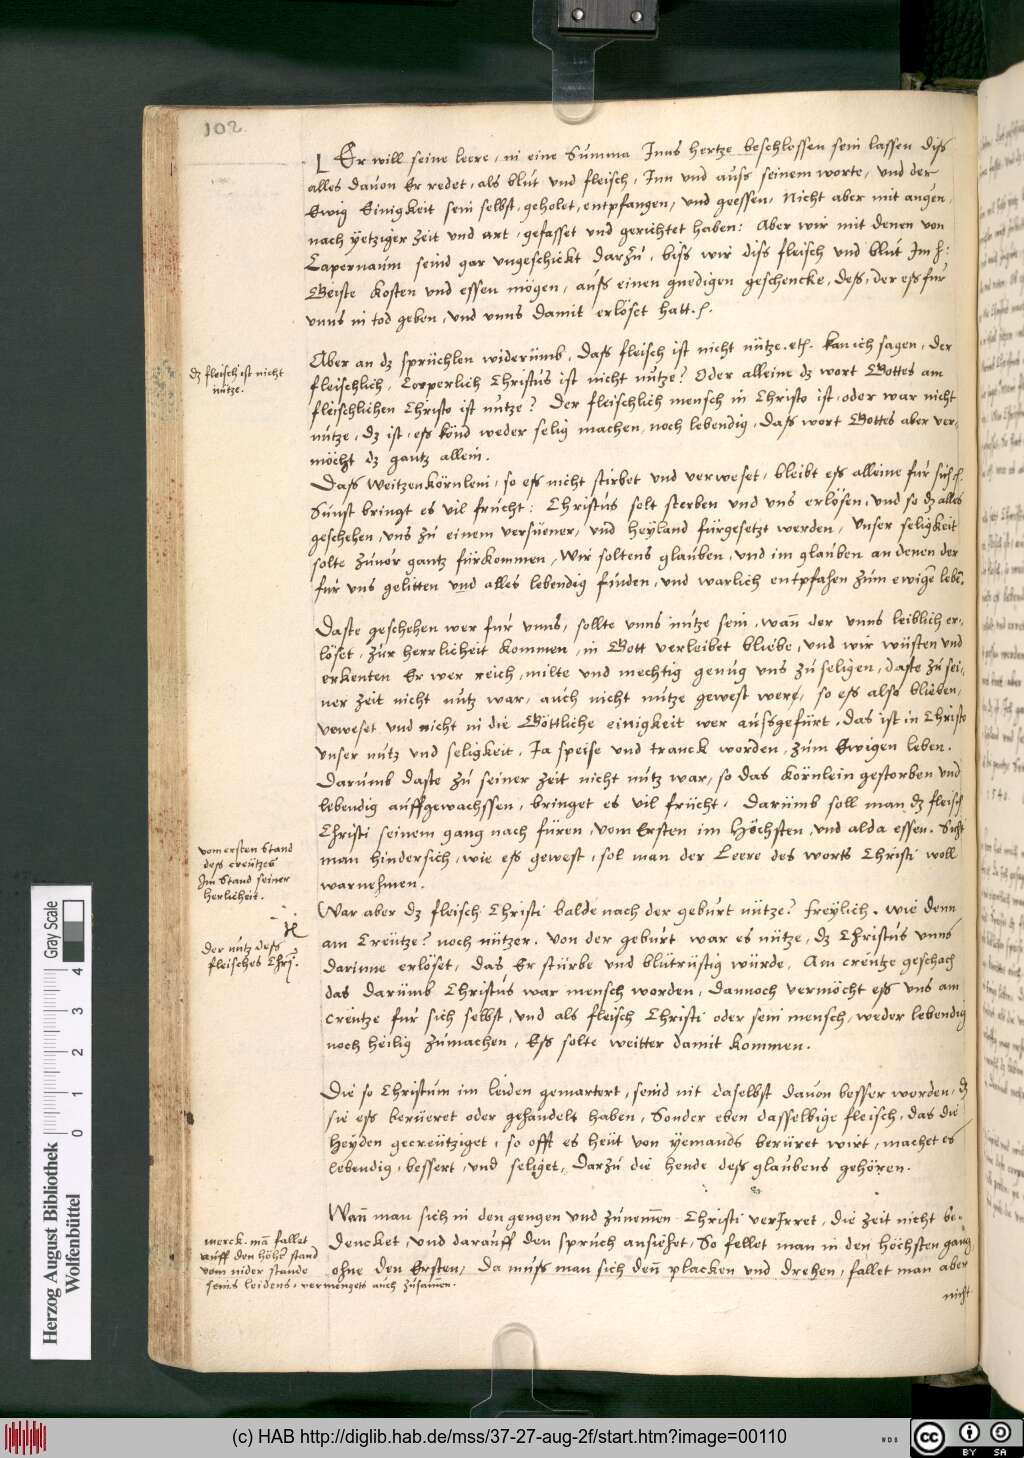 102
Er will seine leere, in eine Summa Inns hertze beschlossen sein lassen diss
alles dauon Er redet, als blut vnd fleisch, Inn vnd auss seinem worte, vnd der
Ewig Einigkeit sein selbst, geholet, entpfangen, vnd geessen, Nicht aber mit augen,
nach yetziger zeit vnd art, gefasset vnd gerichtet haben: Aber wir mit denen von
Capernaum seind gar vngeschickt darzu, biss wir diss fleisch vnd blut Im h:
Geiste kosten vnd essen mögen, auss einen gnedigen geschencke, dess, der ess fur
vnns in tod geben, vnd vnns damit erlöset hatt.
Aber an dz sprüchlen widerumb, dass fleisch ist nicht nütze. etc. kan ich sagen, der
fleischlich, Corperlich Christus ist nicht nutze? Oder alleine dz wort Gottes am
fleischlichen Christo ist nutze? Der fleischlich mensch in Christo ist, oder war nicht
nütze, dz ist, ess könd weder selig machen, noch lebendig, dass wort Gottes aber ver-
möcht dz gantz allein.
dz fleisch ist nicht
nütze.
Dass weitzenkörnlein, so ess nicht stirbet vnd verweset, bleibt ess alleine fur sich
Sunst bringt es vil frucht: Christus solt sterben vnd vns erlösen, vnd so dz alles
geschehen, vns zu einem versüener, vnd heyland fürgesetzt werden, vnser seligkeit
solte zuuor gantz fürkommen, wir soltens glauben, vnd im glauben an denen der
fur vns gelitten vnd alles lebendig finden, vnd warlich entpfahen zum ewigē lebē.
Daste geschehen wer fur vnns, sollte vnns nutze sein, wan̄ der vnns leiblich er-
löset, zur herrlicheit kommen, in Gott verleibet bliebe, vnd wir wüsten vnd
erkenten Er wer reich, milte vnd mechtig genug vns zu seligen, daste zu sei-
ner zeit nicht nutz war, auch nicht nutze gewest were, so ess also blieben,
verweset vnd nicht in die Göttliche einigkeit wer aussgefürt, das ist in Christo
vnser nutz vnd seligkeit, Ja speise vnd tranck worden, zum Ewigen leben.
Darumb daste zu seiner zeit nicht nutz war, so das körnlein gestorben vnd
lebendig auffgewachssen, bringet es vil frücht, Darumb soll man dz fleisch
Christi seinem gang nach füren, vom Ersten im Höchsten, vnd alda essen. Sicht
man hindersich, wie ess gewest, sol man der Leere des worts Christi woll
warnehmen.
vom ersten Stand
dess creutzes
Im Stand seiner
herlicheit.
War aber dz fleisch Christi balde nach der geburt nütze? freylich, wie denn
am Creütze? noch nützer. Von der geburt war es nütze, dz Christus vnns
darinne erlöset, das Er stürbe vnd blutrüstig würde, Am creutze geschach
das darumb Christus war mensch worden, dannoch vermöcht ess vns am
creutze fur sich selbst, vnd als fleisch Christi oder sein mensch, weder lebendig
noch heilig zumachen, Ess solte weitter damit kommen.
der nutz dess
fleisches Chrj.
Die so Christum im leiden gemartert, seind nit daselbst dauon besser worden, dz
sie ess berüeret oder gehandelt haben, Sonder eben dasselbige fleisch, das die
heyden gecreütziget, so offt es heut von yemands berüret wirt, machet es
lebendig, bessert, vnd seliget, Darzu die hende dess glaubens gehören.
Wan̄ man sich in den gengen vnd zunemen̄ Christi verIrret, die zeit nicht be-
dencket, vnd darauff den spruch ansiehet, So fellet man in den höchsten gang
ohne den Ersten, Da muss man sich den̄ placken vnd drehen, fallet man aber
nicht
merck. ma̅ fallet
auff den höhē stand
vom nider stande
seins leidens, vermengets auch zusamen̄.
Herzog August Bibliothek
Wolfenbüttel
Gray Scale
0 1 2 3 4
(c) HAB http://diglib.hab.de/mss/37-27-aug-2f/start.htm?image=00110
WDB
cc BY SA